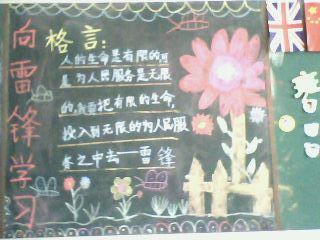 向雷锋学习
格言：
人的生命是有限的可
是为人民服务是无限
的,我要把有限的生命,
投入到无限的为人民服
务之中去——雷锋